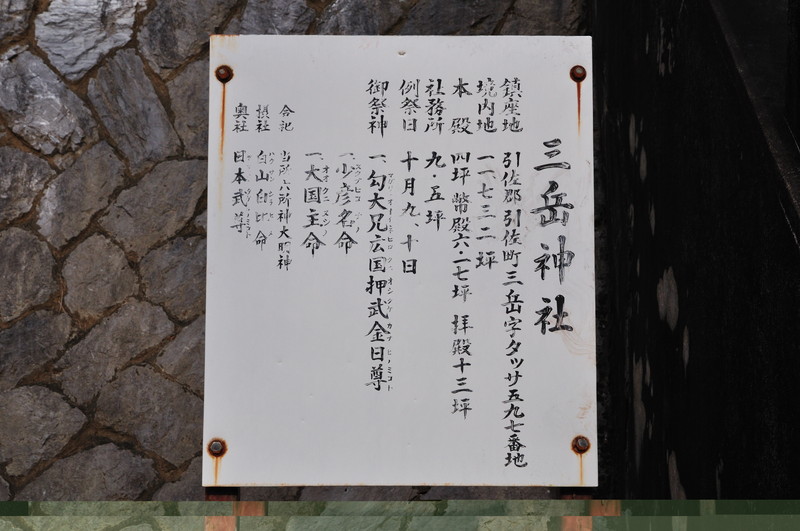 三岳神社
鎮座地 引佐郡引佐町三岳字タツサ五九七番地
境内地 一、七三二坪
本殿 四坪 幣殿六・二七坪 拝殿十三坪
社務所 九・五坪
例祭日 十月九、十日
御祭神 一、勾大兄広国押武金日尊
一、少彦名命
一、大国主命
合祀 当所六所神大明神
摂社 白山白比命
奥社 日本武尊